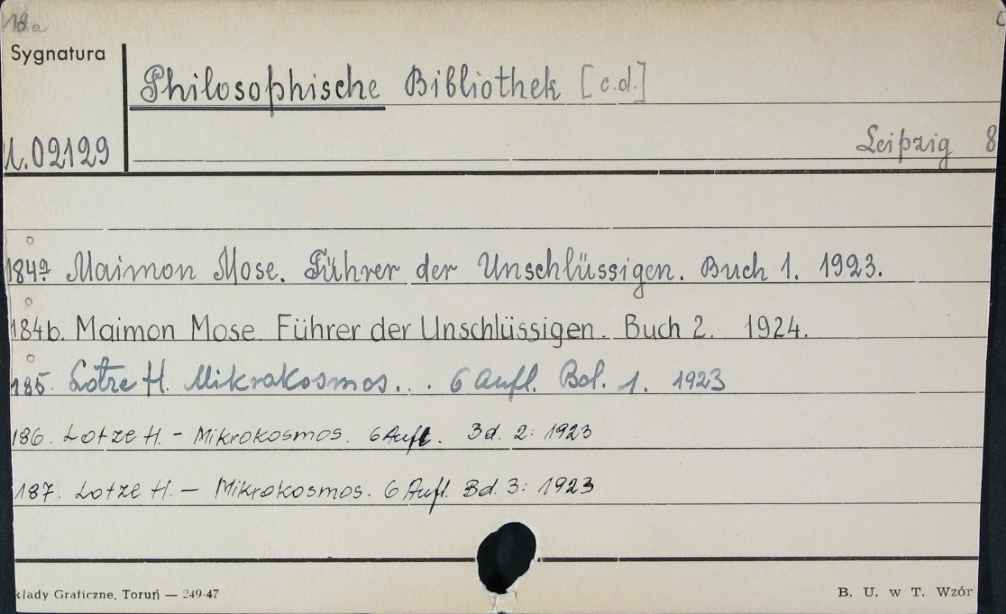 18.a
Sygnatura
Philosophische Bibliothek [c.d.]
U.02129
Leipzig 8
184a Maimon Mose. Führer der Unschlüssigen. Buch 1. 1923.
184b. Maimon Mose Führer der Unschlüssigen. Buch 2. 1924.
185. Lotze H. Mikrokosmos... 6 Aufl. Bd. 1. 1923
186. Lotze H. - Mikrokosmos. 6 Aufl. Bd. 2: 1923
187. Lotze H. - Mikrokosmos. 6 Aufl. Bd. 3: 1923
kłady Graficzne, Toruń — 249-47
B. U. w T. Wzór